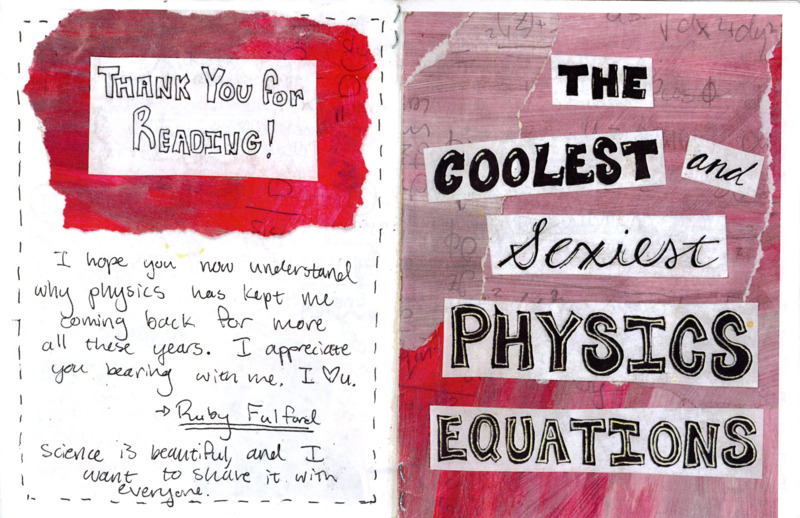 THANK YOU for
READING!
I hope you now understand
why physics has kept me
coming back for more
all these years. I appreciate
you bearing with me. I ♡ u.
→ Ruby Fulford
Science is beautiful, and I
want to share it with
everyone.
THE
COOLEST and
Sexiest
PHYSICS
EQUATIONS